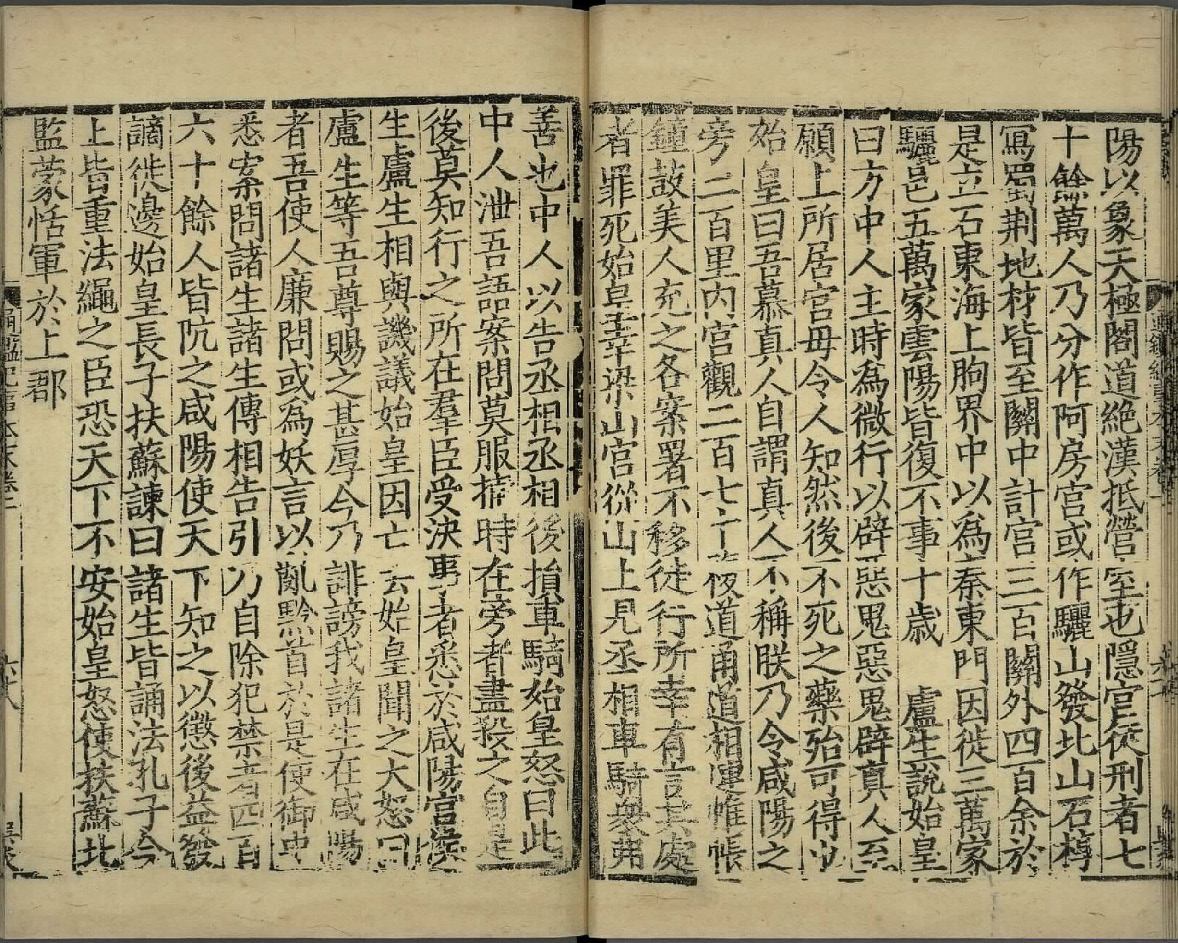 陽以象天極閣道絕漢抵營室也隱宫徒刑者七
十餘萬人乃分作阿房宫或作驪山發北山石椁
寫蜀荆地材皆至關中計宫三百關外四百余於
是立石東海上朐界中以為秦東門因徙三萬家
驪邑五萬家雲陽皆復不事十歳　盧生說始皇
曰方中人主時為微行以辟惡鬼惡鬼辟真人至
願上所居宫毋令人知然後不死之藥殆可得也
始皇曰吾慕真人自謂真人不稱朕乃令咸陽之
旁二百里内宫觀二百七十復道甬道相連帷帳
鐘鼓美人充之各案署不移徙行所幸有言其處
者罪死始皇幸梁山宫從山上見丞相車騎衆弗
善也中人以告丞相丞相後損車騎始皇怒曰此
中人泄吾語案問莫服捕時在旁者盡殺之自是
後莫知行之所在羣臣受決事者悉於咸陽宫侯
生盧生相與譏議始皇因亡去始皇聞之大怒曰
盧生等吾尊賜之甚厚今乃誹謗我諸生在咸陽
者吾使人廉問或為妖言以亂黔首於是使御史
悉案問諸生諸生傳相告引乃自除犯禁者四百
六十餘人皆阬之咸陽使天下知之以懲後益發
謫徙邊始皇長子扶蘇諫曰諸生皆誦法孔子今
上皆重法繩之臣恐天下不安始皇怒使扶蘇北
監蒙恬軍於上郡
通鑑紀事本末卷一
六十八